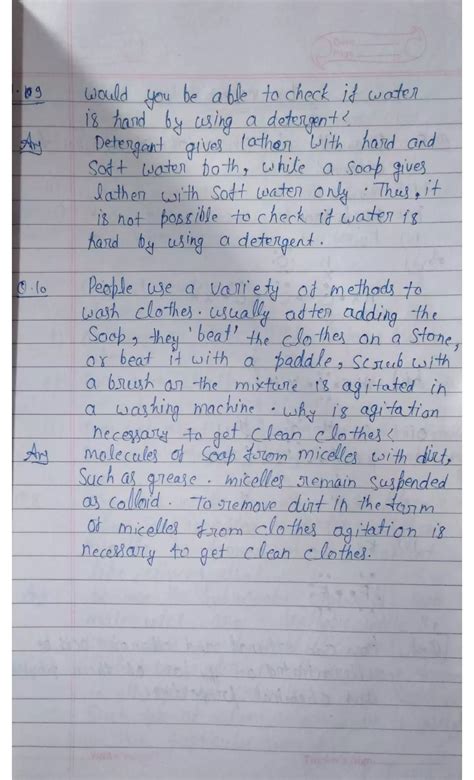 Q9 would you be able to check if water
is hard by using a detergent?
Ans Detergant gives lather with hard and
soft water both, while a soap gives
lather with soft water only. Thus, it
is not possible to check if water is
hard by using a detergent.
Q.10 People use a variety of methods to
wash clothes. usually after adding the
soap, they 'beat' the clothes on a stone,
or beat it with a paddle, scrub with
a brush or the mixture is agitated in
a washing machine. why is agitation
necessary to get clean clothes?
Ans molecules of soap from micelles with dirt,
such as grease. micelles remain suspended
as colloid. To remove dirt in the farm
of micelles from clothes agitation is
necessary to get clean clothes.